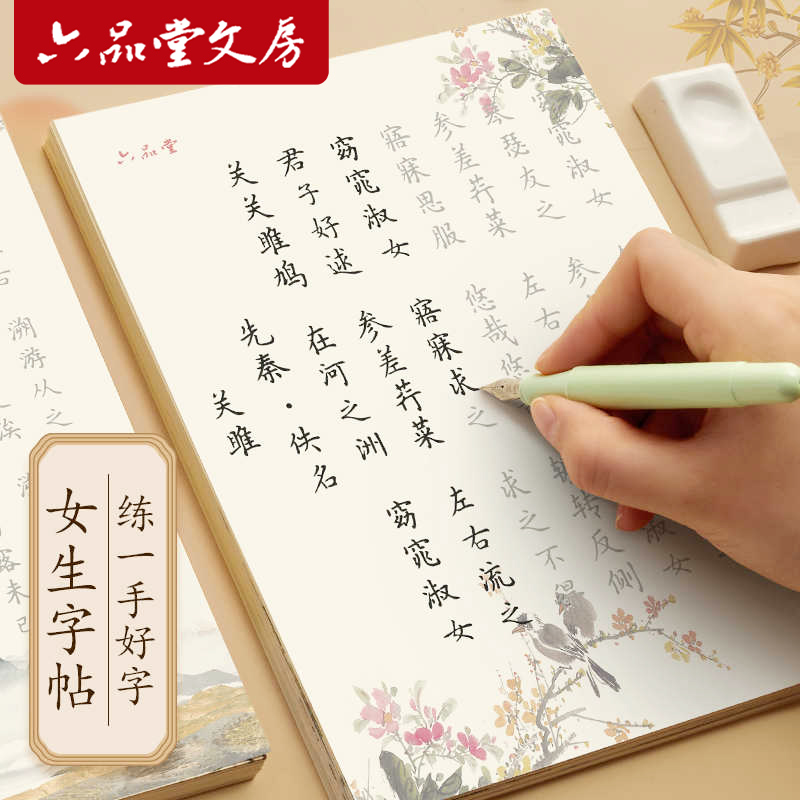 六品堂文房
六品堂
关雎
先秦·佚名
关关雎鸠
在河之洲
窈窕淑女
君子好逑
参差荇菜
左右流之
窈窕淑女
寤寐求之
求之不得
寤寐思服
悠哉悠
转反侧
参差荇菜
左右
淑女
琴瑟友之
参
窈窕淑女
溯游从之
未已
练一手好字
女生字帖